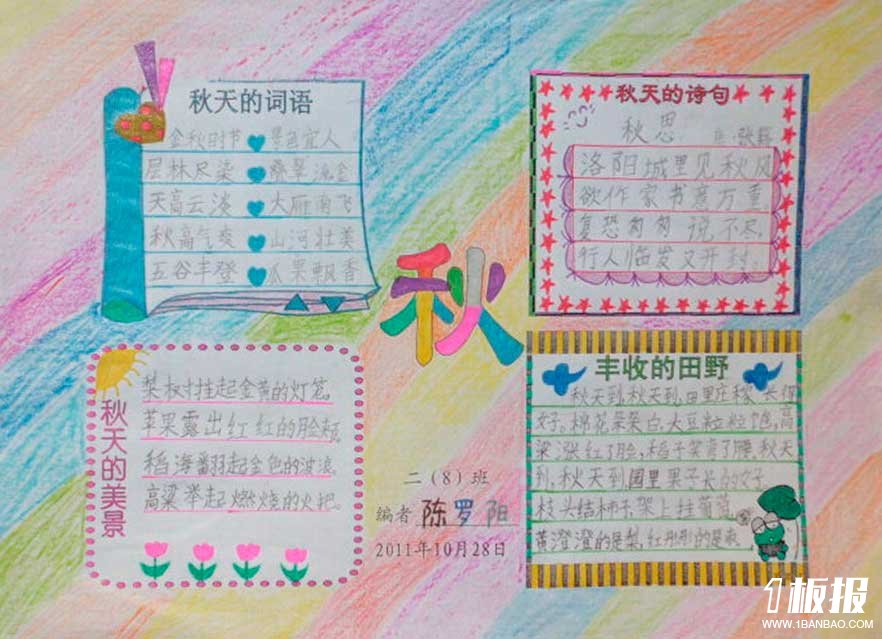 秋天的词语
金秋时节 景色宜人
层林尽染 叠翠流金
天高云淡 大雁南飞
秋高气爽 山河壮美
五谷丰登 瓜果飘香
秋天的诗句
秋思 张籍
洛阳城里见秋风
欲作家书意万重
复恐匆匆说不尽
行人临发又开封
秋
秋天的美景
梨树挂起金黄的灯笼
苹果露出红红的脸颊
稻海翻起金色的波浪
高粱举起燃烧的火把。
丰收的田野
秋天到,秋天到,田里庄稼长得
好。棉花朵朵白,大豆粒粒饱,高
粱涨红了脸,稻子笑弯了腰。秋天
到,秋天到,园里果子长的好。
枝头结柿子,架上挂葡萄。
黄澄澄的是梨,红彤彤的是枣。
二(8)班
编者 陈罗阳
2011年10月28日
1板报
WWW.1BANBAO.COM